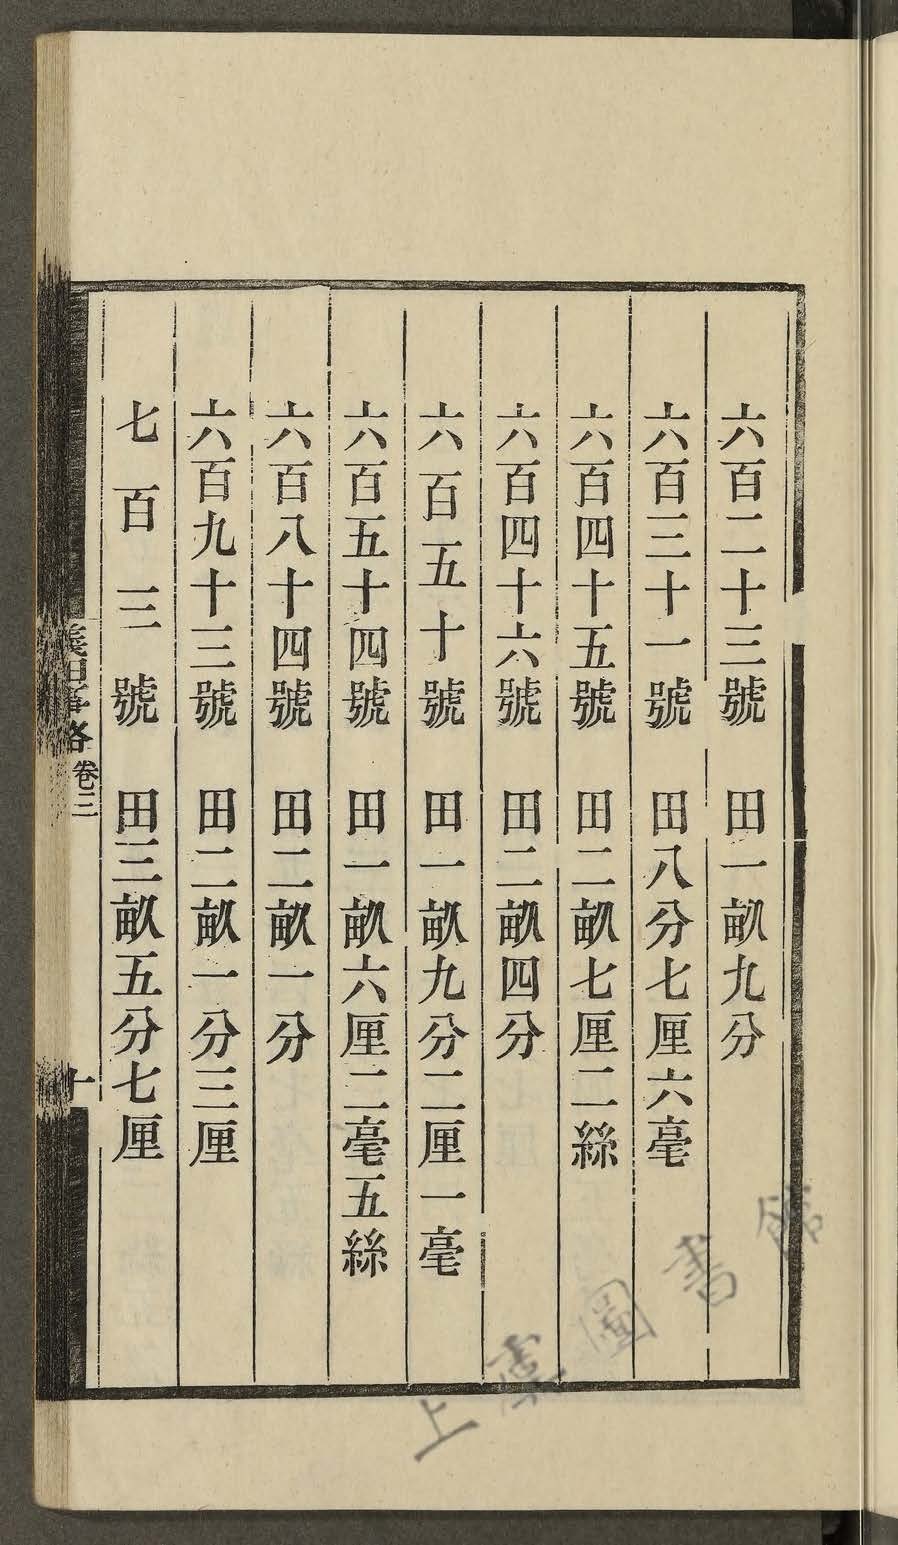 六百二十三號　田一畝九分
六百三十一號　田八分七厘六毫
六百四十五號　田二畝七厘二絲
六百四十六號　田二畝四分
六百五十號　田一畝九分二厘一毫
六百五十四號　田一畝六厘二毫五絲
六百八十四號　田二畝一分
六百九十三號　田二畝一分三厘
七百三號　田三畝五分七厘
義田事略 卷三 十
上虞圖書館